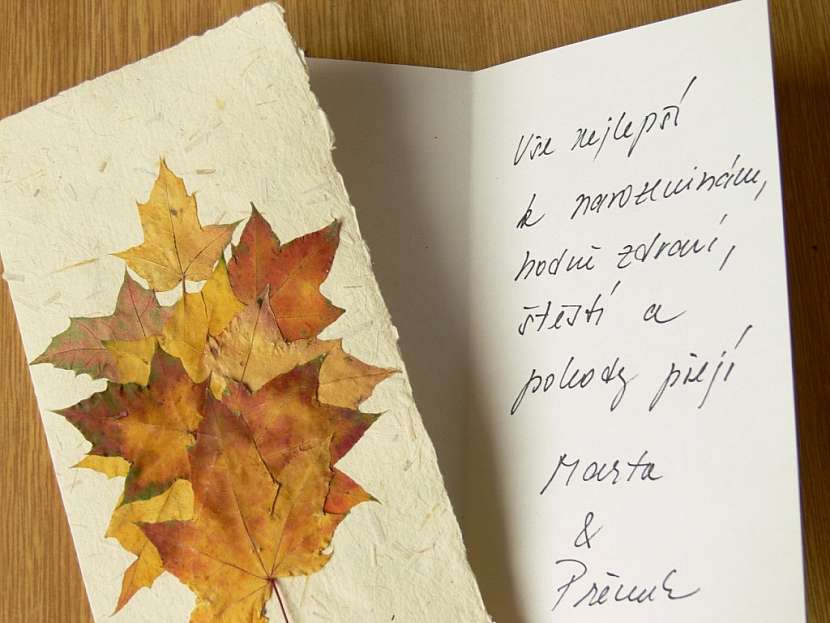 Vše nejlepší
k narozeninám,
hodně zdraví,
štěstí a
pohody přejí
Marta
&
Přemek